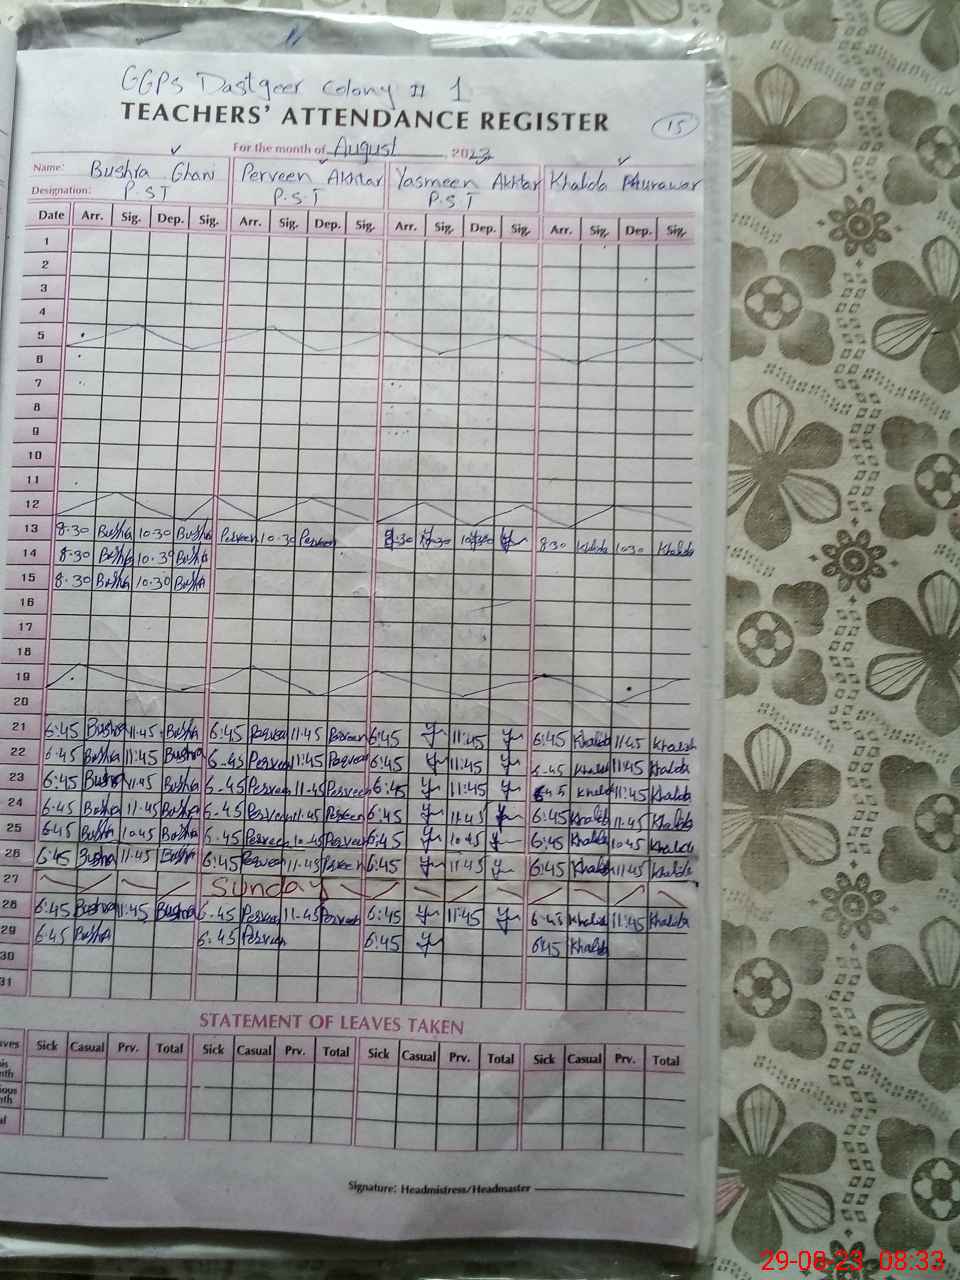 GGPS Dastgeer Colony # 1
TEACHERS' ATTENDANCE REGISTER 15
For the month of August, 2023
Name: Bushra Ghani Perveen Akhtar Yasmeen Akhtar Khalida
Designation: P.S.T P.S.T P.S.T
Date Arr. Sig. Dep. Sig. Arr. Sig. Dep. Sig. Arr. Sig. Dep. Sig. Arr. Sig. Dep. Sig.
1
2
3
4
5
6
7
8
9
10
11
12
13 8.30 Bushra 10.30 Bushra Perveen 10.30 Perveen 8.30 10.30 8.30 Khalida 10.30 Khalida
14 8.30 Bushra 10.30 Bushra
15 8.30 Bushra 10.30 Bushra
16
17
18
19
20
21 6:45 Bushra 11.45 Bushra 6:45 Perveen 11:45 Perveen 6:45 11:45 6:45 Khalida 11:45 Khalida
22 6:45 Bushra 11:45 Bushra 6.45 Perveen 11:45 Perveen 6:45 11:45 6:45 Khalida 11:45 Khalida
23 6:45 Bushra 11.45 Bushra 6.45 Perveen 11.45 Perveen 6:45 11:45 6:45 Khalida 11:45 Khalida
24 6.45 Bushra 11.45 Bushra 6.45 Perveen 11.45 Perveen 6:45 11:45 6:45 Khalida 11.45 Khalida
25 6.45 Bushra 10.45 Bushra 6.45 Perveen 10.45 Perveen 6:45 10:45 6:45 Khalida 10.45 Khalida
26 6:45 Bushra 11:45 Bushra 6:45 Perveen 11.45 Perveen 6:45 11:45 6:45 Khalida 11:45 Khalida
27 Sunday
28 6:45 Bushra 11:45 Bushra 6.45 Perveen 11.45 Perveen 6:45 11:45 6:45 Khalida 11:45 Khalida
29 6:45 Bushra 6:45 Perveen 6:45 6:45 Khalida
30
31
STATEMENT OF LEAVES TAKEN
Sick Casual Prv. Total Sick Casual Prv. Total Sick Casual Prv. Total Sick Casual Prv. Total
Signature: Headmistress/Headmaster
29-08-23 08:33